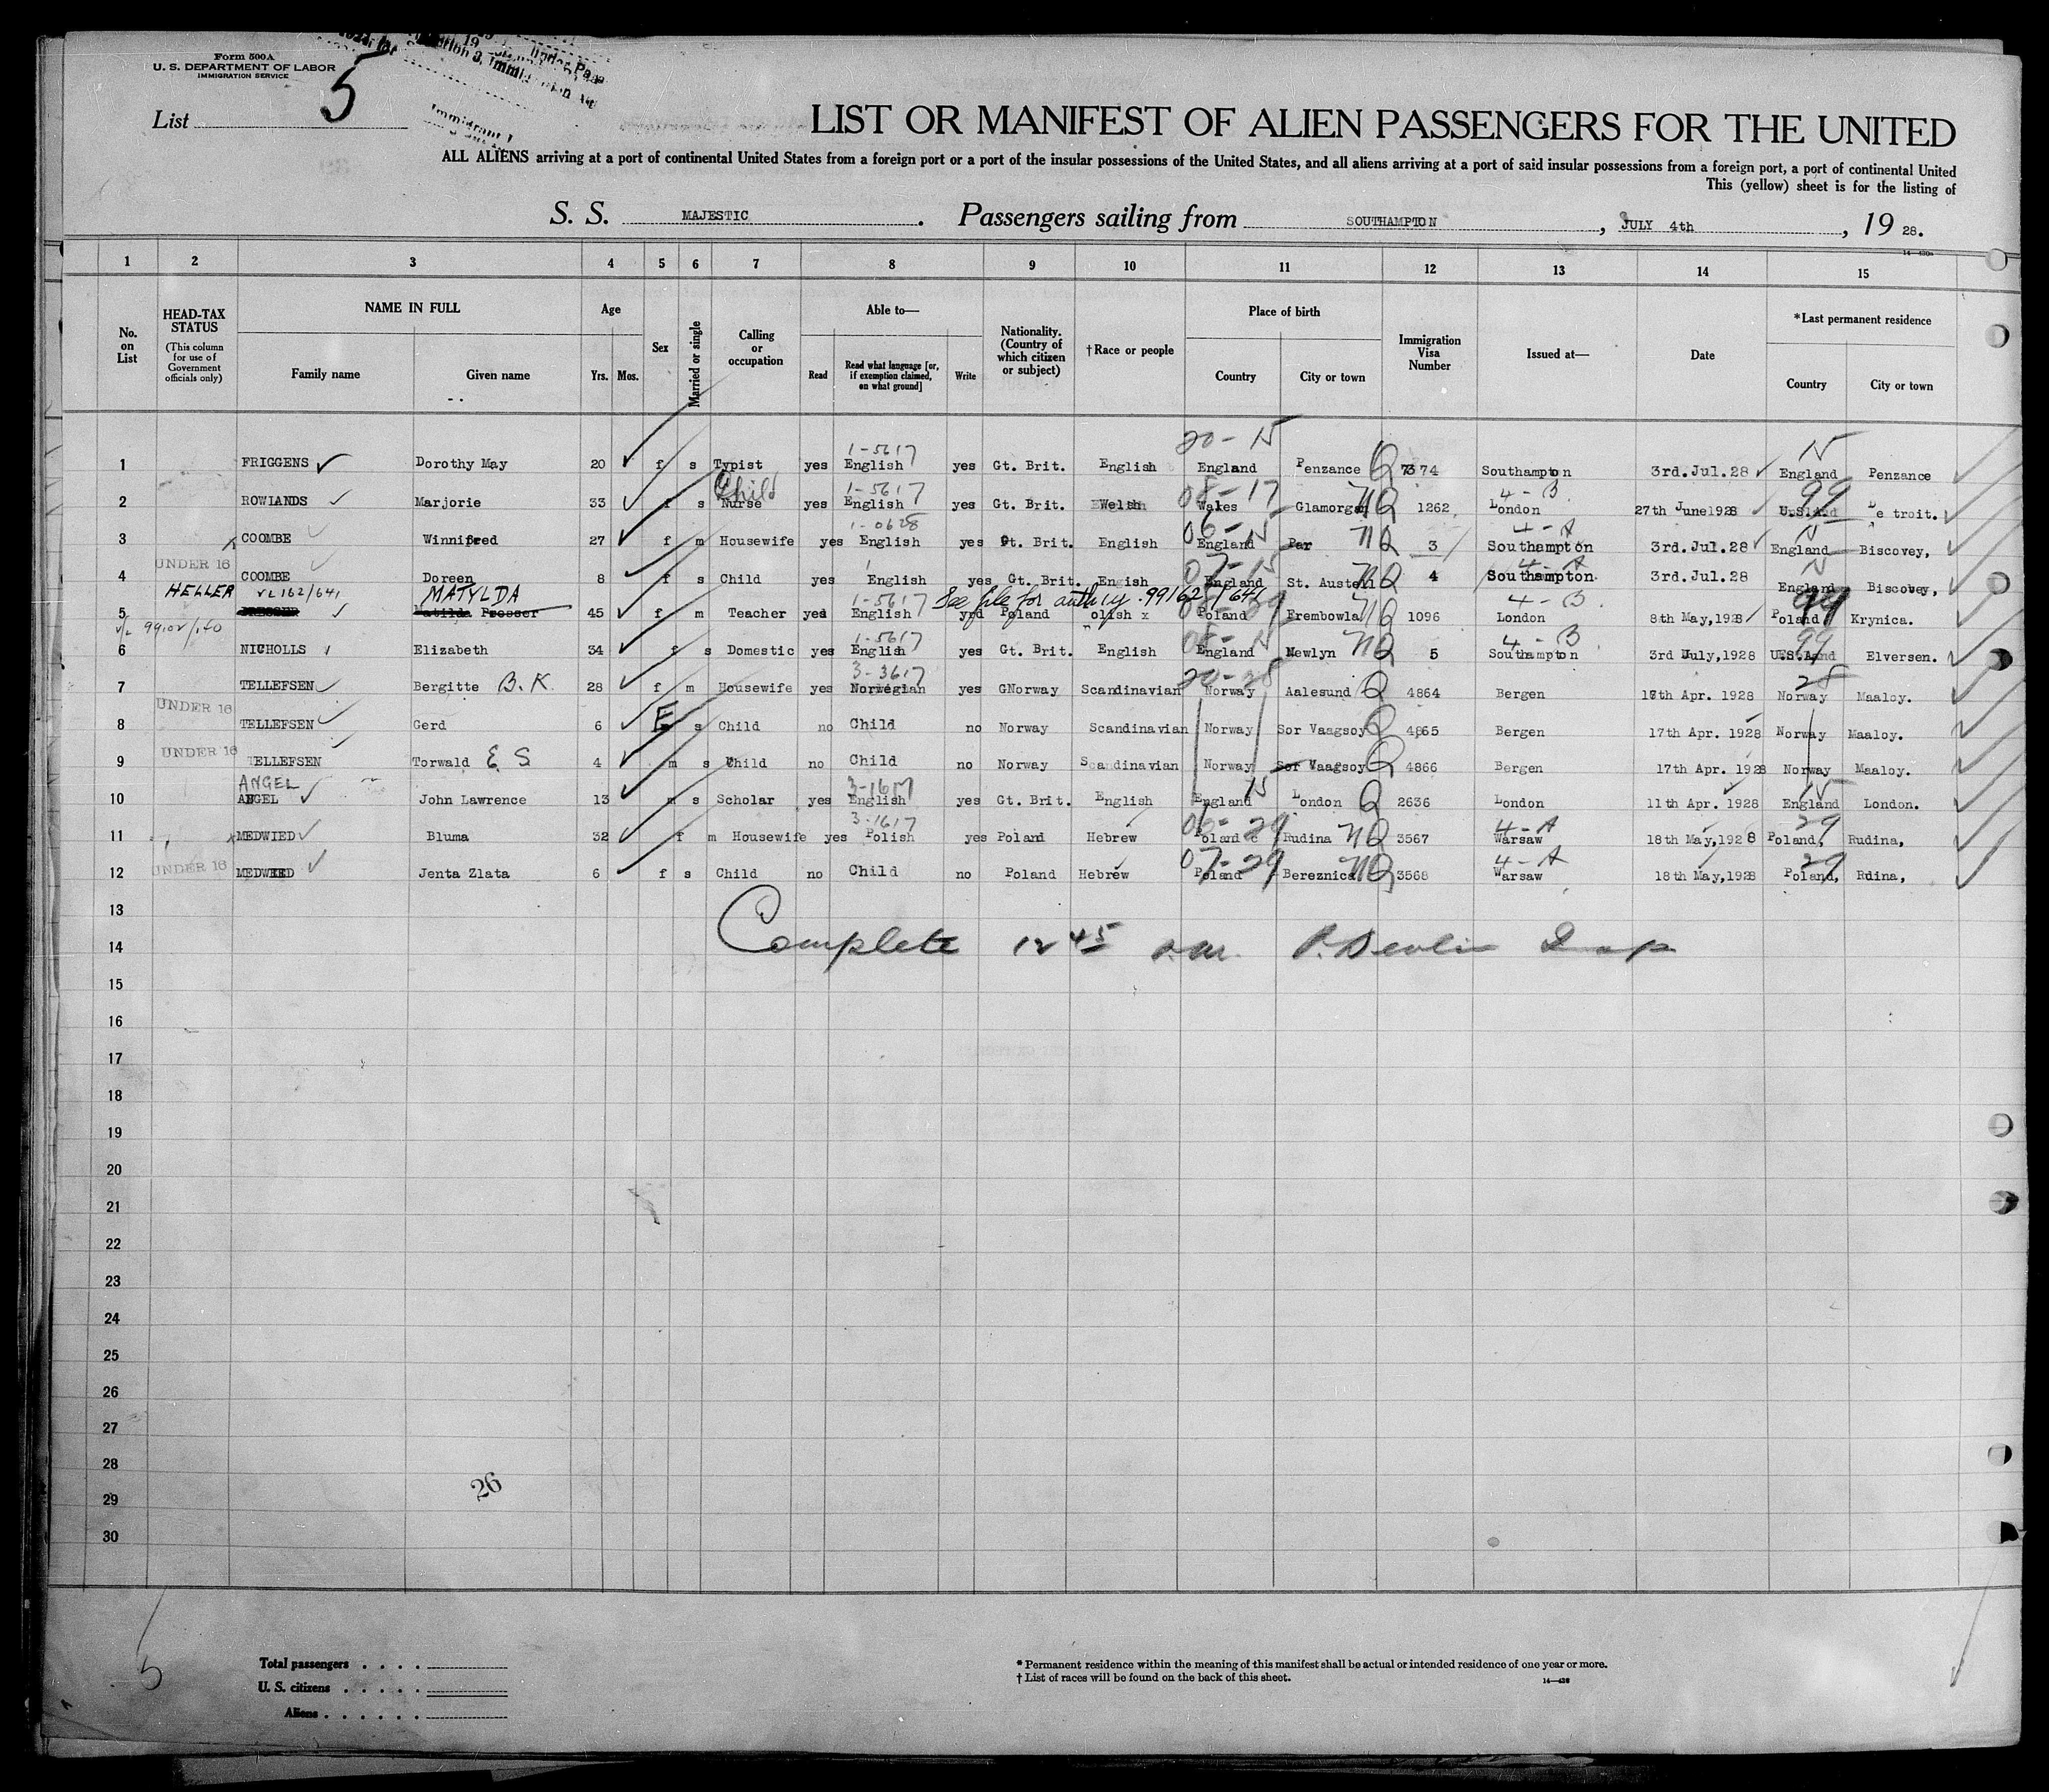 Form 500A
U. S. DEPARTMENT OF LABOR
IMMIGRATION SERVICE
List 5
LIST OR MANIFEST OF ALIEN PASSENGERS FOR THE UNITED
ALL ALIENS arriving at a port of continental United States from a foreign port or a port of the insular possessions of the United States, and all aliens arriving at a port of said insular possessions from a foreign port, a port of continental United
This (yellow) sheet is for the listing of
S. S. MAJESTIC . Passengers sailing from SOUTHAMPTON , JULY 4th , 19 28.
1 2 3 4 5 6 7 8 9 10 11 12 13 14 15
No. on List
HEAD-TAX STATUS (This column for use of Government officials only)
NAME IN FULL
Family name
Given name
Age
Yrs. Mos.
Sex
Married or single
Calling or occupation
Able to—
Read
Read what language [or, if exemption claimed, on what ground]
Write
Nationality. (Country of which citizen or subject)
†Race or people
Place of birth
Country
City or town
Immigration Visa Number
Issued at—
Date
*Last permanent residence
Country
City or town
20 - 15
1-5617 15
1 FRIGGENS Dorothy May 20 f s Typist yes English yes Gt. Brit. English England Penzance Q 7374 Southampton 3rd.Jul.28 England Penzance
Child 1-5617 08-17 4-B 99
2 ROWLANDS Marjorie 33 f s Nurse yes English yes Gt. Brit. Welsh Wales Glamorgan NQ 1262 London 27th June1928 Detroit.
1-0628 06-15 4-A 15
3 COOMBE Winnifred 27 f m Housewife yes English yes Gt. Brit. English England Par NQ 3 Southampton 3rd.Jul.28 England Biscovey,
UNDER 16 07-15 4-A 15
4 COOMBE Doreen 8 f s Child yes English yes Gt. Brit. Engish England St. Austell NQ 4 Southampton 3rd.Jul.28 England Biscovey,
HELLER VL162/641 MATYLDA 1-5617 See file for auth'ity 99162/641 4-B
5 Matilda Prosser 45 f m Teacher yes English Poland olish x Poland Trembowla NQ 1096 London 8th May,1928 Poland Krynica.
1-5617 08-15 4-B 99
6 NICHOLLS Elizabeth 34 f s Domestic yes English yes Gt. Brit. English England Newlyn NQ 5 Southampton 3rd July,1928 Elversen.
3-3617 20-28 28
7 TELLEFSEN Bergitte B. K. 28 f m Housewife yes Norwegian yes GNorway Scandinavian Norway Aalesund Q 4864 Bergen 17th Apr. 1928 Norway Maaloy.
UNDER 16
8 TELLEFSEN Gerd 6 F s Child no Child no Norway Scandinavian Norway Sor Vaagsoy Q 4865 Bergen 17th Apr. 1928 Norway Maaloy.
UNDER 16
9 TELLEFSEN Torwald E S 4 m s Child no Child no Norway Scandinavian Norway Sor Vaagsoy Q 4866 Bergen 17th Apr. 1928 Norway Maaloy.
ANGEL 3-1617 15 15
10 ANGEL John Lawrence 13 m s Scholar yes English yes Gt. Brit. English England London Q 2636 London 11th Apr. 1928 England London.
3-1617 06-29 4-A 29
11 MEDWIED Bluma 32 f m Housewife yes Polish yes Poland Hebrew Poland Rudina NQ 3567 Warsaw 18th May,1928 Poland, Rudina,
UNDER 16 07-29 4-A 29
12 MEDWIED Jenta Zlata 6 f s Child no Child no Poland Hebrew Poland Bereznica NQ 3568 Warsaw 18th May,1928 Poland, Rdina,
13
14 Complete 12 45 P.M. P. Devlin Insp
15
16
17
18
19
20
21
22
23
24
25
26
27
28
29
26
30
5
Total passengers . . . .
U. S. citizens . . . . .
Aliens . . . . . .
* Permanent residence within the meaning of this manifest shall be actual or intended residence of one year or more.
† List of races will be found on the back of this sheet.